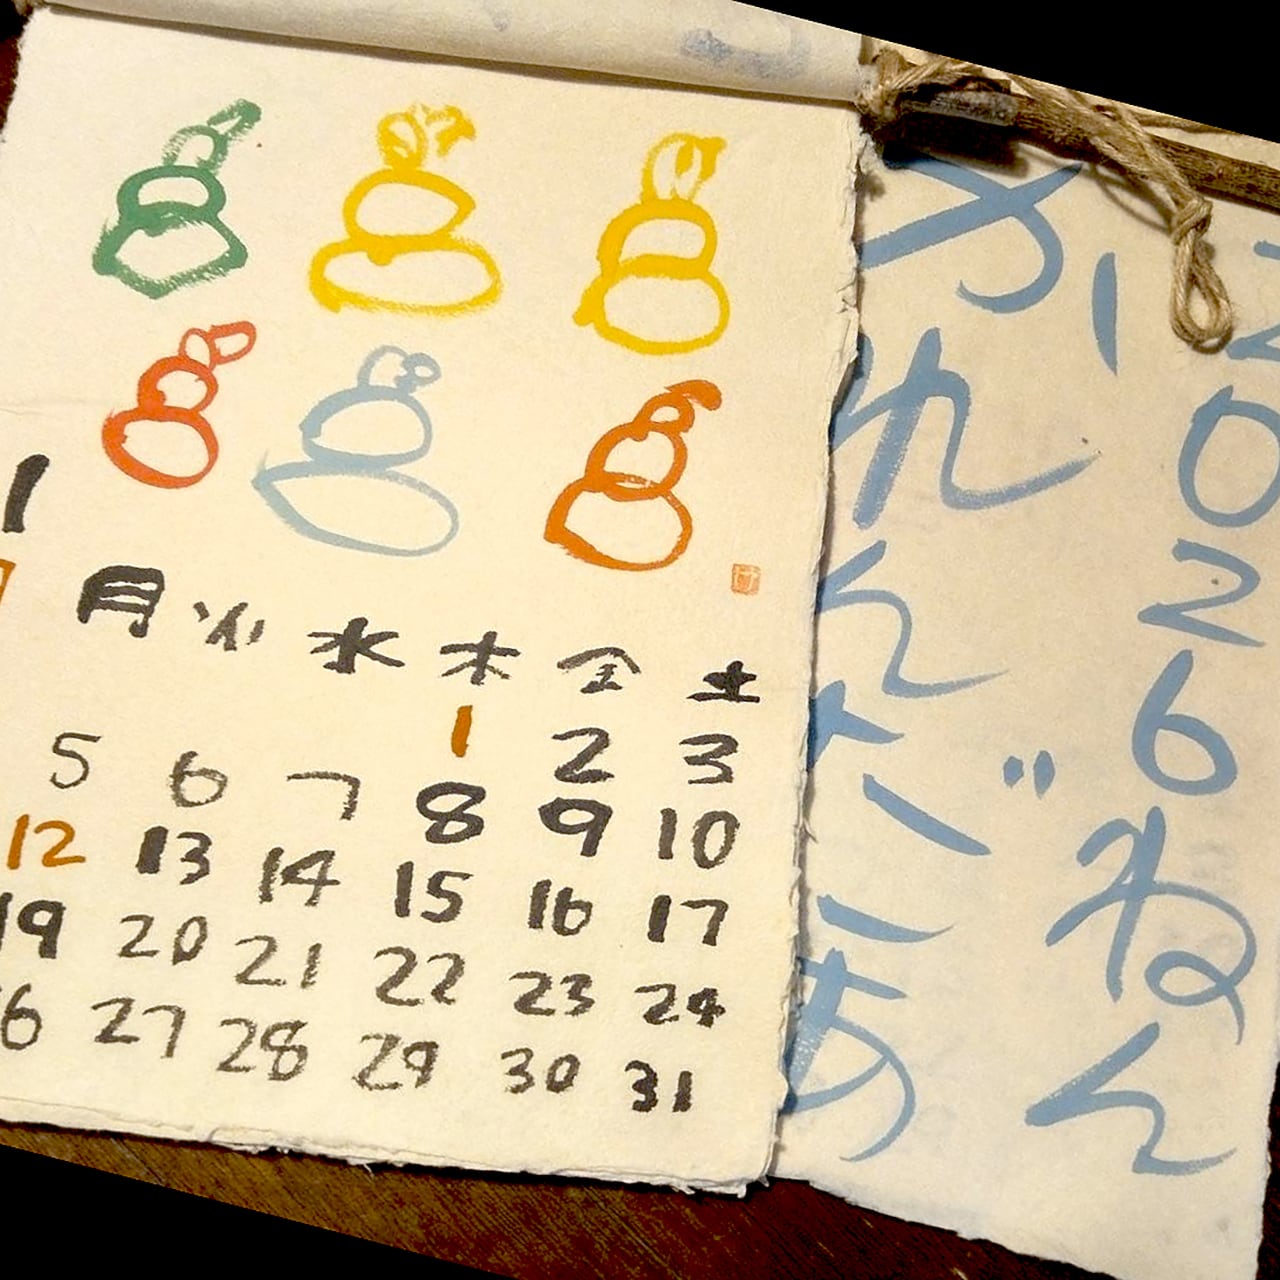 1
月 火 水 木 金 土
1 2 3
5 6 7 8 9 10
12 13 14 15 16 17
19 20 21 22 23 24
6 27 28 29 30 31
2026ねん
かれんだあ